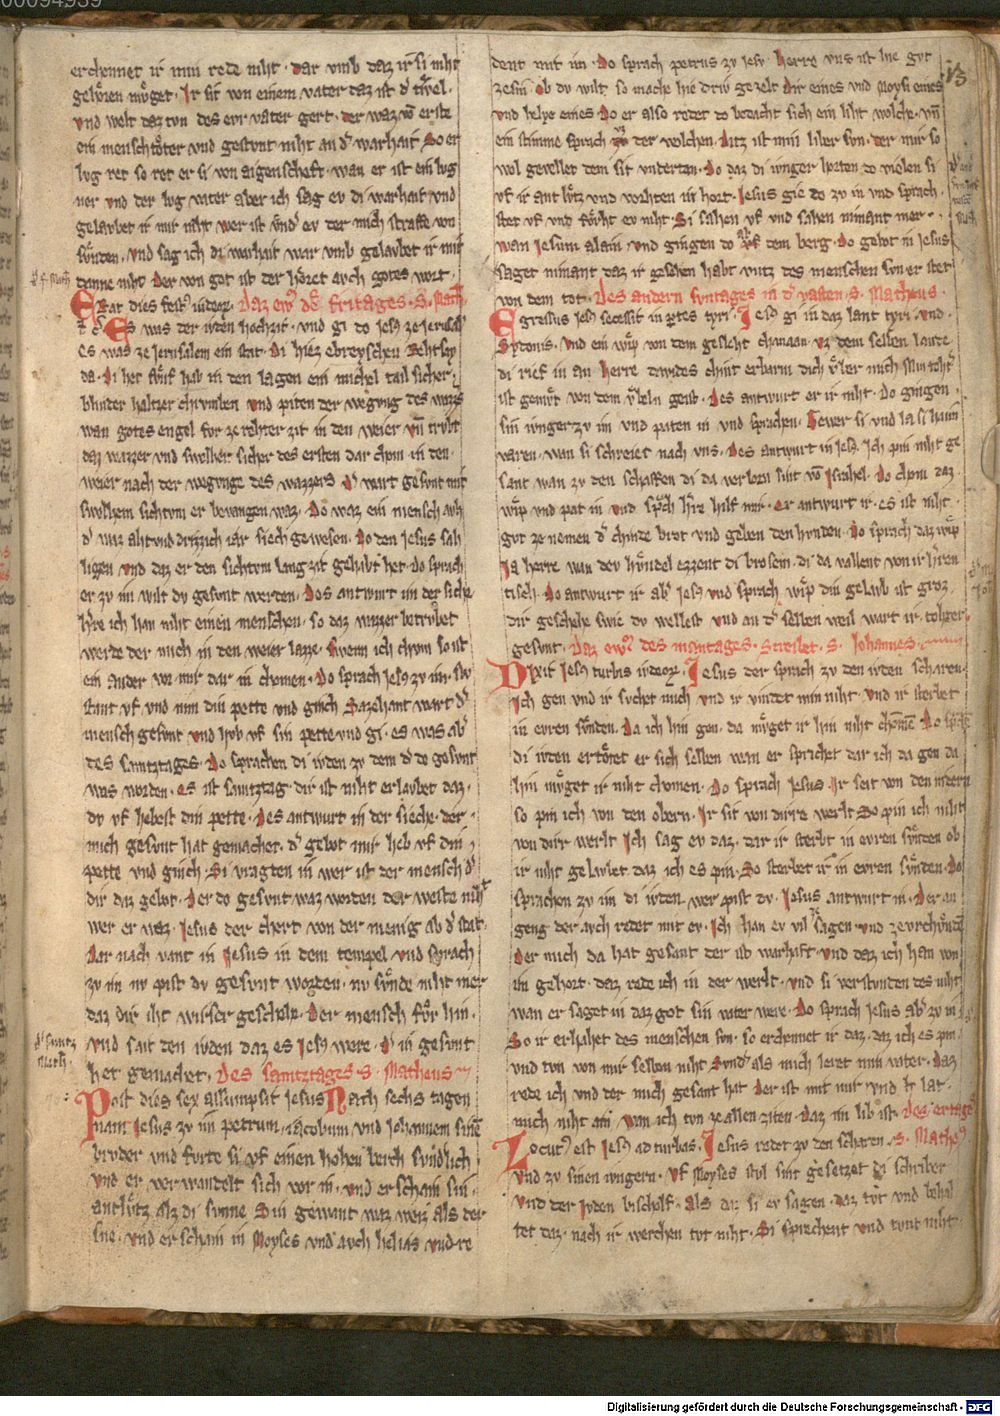 erchennet ir min rede niht · dar vmb daz ir si niht
gehoͤren muͤget · Ir sit von einem vater daz ist d̾ tivel ·
vnd welt daz tvn des evr vater gert · der waz võ erste
ein menschtoͤter vnd gestvnt niht an d̾ warhait So er
lvg ret so ret er si von aigenschaft · wan er ist ein lvg
ner vnd der lvg vater aber ich sag ev di warhait vnd
gelavbet ir mir niht wer ist vnd̾ ev der mich straffe von
suͤnden · vnd sag ich di warhait war vmb gelavbet ir mir
danne niht · Der von got ist der hoͤret avch gotes wort ·
Erat dies festꝰ iudeoꝝ · Daz ewꝰ des fritages · S · Math̾
Es was der ivden hochzit · vnd gi do jesꝰ ze jerusalē
es was ze jerusalem ein stat · di hiez ebreyschen Bethsay
da · di het fvͤnf hab in den lagen ein michel tail sicher ·
blinder haltzer chrvmber vnd piten der wegvng des wazzers
wan gotes engel fvr ze rehter zit in den weier vñ trvbt
daz wazzer vnd swelher sicher des ersten dar chom in den
weier nach der wegvnge des wazzers d̾ wart gesvnt mit
swelhem sichtvm er bevangen waz · Do waz ein mensch avh
d̾ waz ahtvnd drizzich iar siech gewesen · Do den jesus sah
ligen vnd daz er den sichtvm lang zit gehabt het · do sprach
er zv im wilt dv gesvnt werden · Des antwurt im der siche
h̾re ich han niht einen menschen · so daz wazzer betrvbet
werde der mich in den weier lazze · swenn ich chvm so ist
ein ander vor mir dar in chomen · Do sprach jesꝰ zv im · sta
stant vf vnd nim din pette vnd ginch Sazehant wart d̾
mensch gesvnt vnd hvb vf sin pette vnd gi · es was ab̾
des samztages · Do sprachen di ivden zv dem d̾ do gesvnt
was worden · es ist samztag dir ist niht erlavbet daz ·
dv vf hebest din pette · Des antwurt in der sieche · der ·
mich gesvnt hat gemachet · d̾ gebot mir heb vf din
pette vnd ginch · Si vragten in wer ist der mensch d̾
dir daz gebot · Der do gesvnt waz worden der weste niht
wer er waz · Jesus der chert von der menig ab d̾ stat ·
Dar nach vant in Jesus in dem tempel vnd sprach
zv im nv pist dv gesvnt worden · nv svͤnde niht mer
daz dir iht wirser geschehe · Der mensch fvͤr hin ·
vnd sait den ivden daz es jesꝰ were · d̾ in gesvnt
het gemachet · Des samztages · S · Matheus
Post dies sex assumpsit jesus Nach sechs tagen
nam jesus zv im petrum · jacobum vnd johannem sinē
brvder vnd fvrte si vf einen hohen berch svndlich ·
vnd er verwandelt sich vor in · vnd er schain sin
antluͤtz alz di svnne Sin gewant waz weiz als der
sne · vnd er schain in Moyses vnd avch helias vnd re
dent mit im · Do sprach petrus zv jesv · herre vns ist hie gvt
zesin · ob dv wilt so mache hie driv gezelt dir eines vnd Moysi eines
vnd helye eines · Do er also redet do bedacht sich ein liht wolche · vñ
ein stimme sprach vz der wolchen · Ditz ist min liber svn · der mir so
wol gevellet dem sit vndertan · Do daz di ivnger horten do vielen si
vf ir antlvtz vnd vorhten in hort · Jesus gie do zv in vnd sprach ·
stet vf vnd foͤrht ev niht · Si sahen vf vnd sahen nimant mer ·
wan Jesum alain · vnd gingen do ab dem berg · Do gebot in jesus
saget nimant daz ir gesehen habt vntz des menschen svn er stet
von dem tot · Des andern svntages in d̾ vasten · S · Matheus ·
Egressus jesꝰ secessit in ꝑtes tyri · Jesꝰ gi in daz lant tyri · vnd ·
Sydonis · vnd ein wip von dem gesleht chanaan · vz dem selben lande
di rief in an herre davides chint erbarm dich vͤber mich Min toht̾
ist gemuͤt von dem vͤbeln geist · Des antwurt er ir niht · do gingen
sin ivnger zv im vnd paten in vnd sprachen · bewer si vnd la si haim
varen · wan si schreiet nach vns · Des antwurt in jesꝰ Ich pin niht ge
sant wan zv den schaffen di da verlorn sint võ israhel · Do chom daz
wip vnd pat in vnd sp̾ch h̾re hilf mir · er antwurt ir · es ist niht ·
gvt ze nemen d̾ chinde brot vnd geben den hvnden · Do sprach daz wip
Ja herre wan dev huͤndel ezzent di brosem · di da vallent von ir h̾ren
tisch · Do antwurt ir ab̾ jesꝰ vnd sprach wip din gelavb ist groz ·
dir geschehe swie dv wellest vnd an d̾ selben weil wart ir tohter
gesvnt · Daz ewꝰ des mantages · Scribet · S · Johannes ·
Dixit jesꝰ turbis iudeoꝝ · Jesus der sprach zv den ivden scharen ·
Ich gen vnd ir svchet mich vnd ir vindet min niht · vnd ir sterbet
in evren svͤnden · Da ich hin gon · da muͤget ir hin niht chomē · Do sprachē
di ivden ertoͤtet er sich selben wan er sprichet dar ich da gon da
hin muͤget ir niht chomen · Do sprach jesus · Ir seit von den nidern
so pin ich von den obern · Ir sit von dirre werlt So pin ich niht
von dirr werlt Ich sag ev daz · dar ir sterbt in evren svͤnden ob
ir niht gelavbet daz ich es pin · So sterbet ir in evren svͤnden · Do
sprachen zv im di ivden · wer pist dv · Jesus antwurt in · Der an
geng der avch redet mit ev · Ich han ev vil ze sagen vnd ze vrchvͤnden
Der mich da hat gesant der ist warhaft vnd daz ich han von
im gehort · daz rede ich in der werlt · vnd si verstvnden des niht
wan er saget in daz got sin vater were · Do sprach jesus ab̾ zv in
So ir erhahet des menschen svn · so erchennet ir daz · daz ich es pin ·
vnd tvn von mir selben niht svnd̾ als mich leret min vater · daz
rede ich vnd der mich gesant hat der ist mit mir vnd er lat ·
mich niht ain · wan ich tvn ze allen ziten · daz im lib ist · des ertages
Locutꝰ est jesꝰ ad turbas · Jesus redet zv den scharen · S · Matheꝰ
vnd zv sinen ivngern · vf Moyses stvl sint gesetzet di schriber
vnd der jvden bischolf · als daz si ev sagen · daz tvt vnd behal
tet daz · nach ir werchen tvt niht · Si sprechent vnd tvnt niht ·
Digitalisierung gefördert durch die Deutsche Forschungsgemeinschaft - DFG